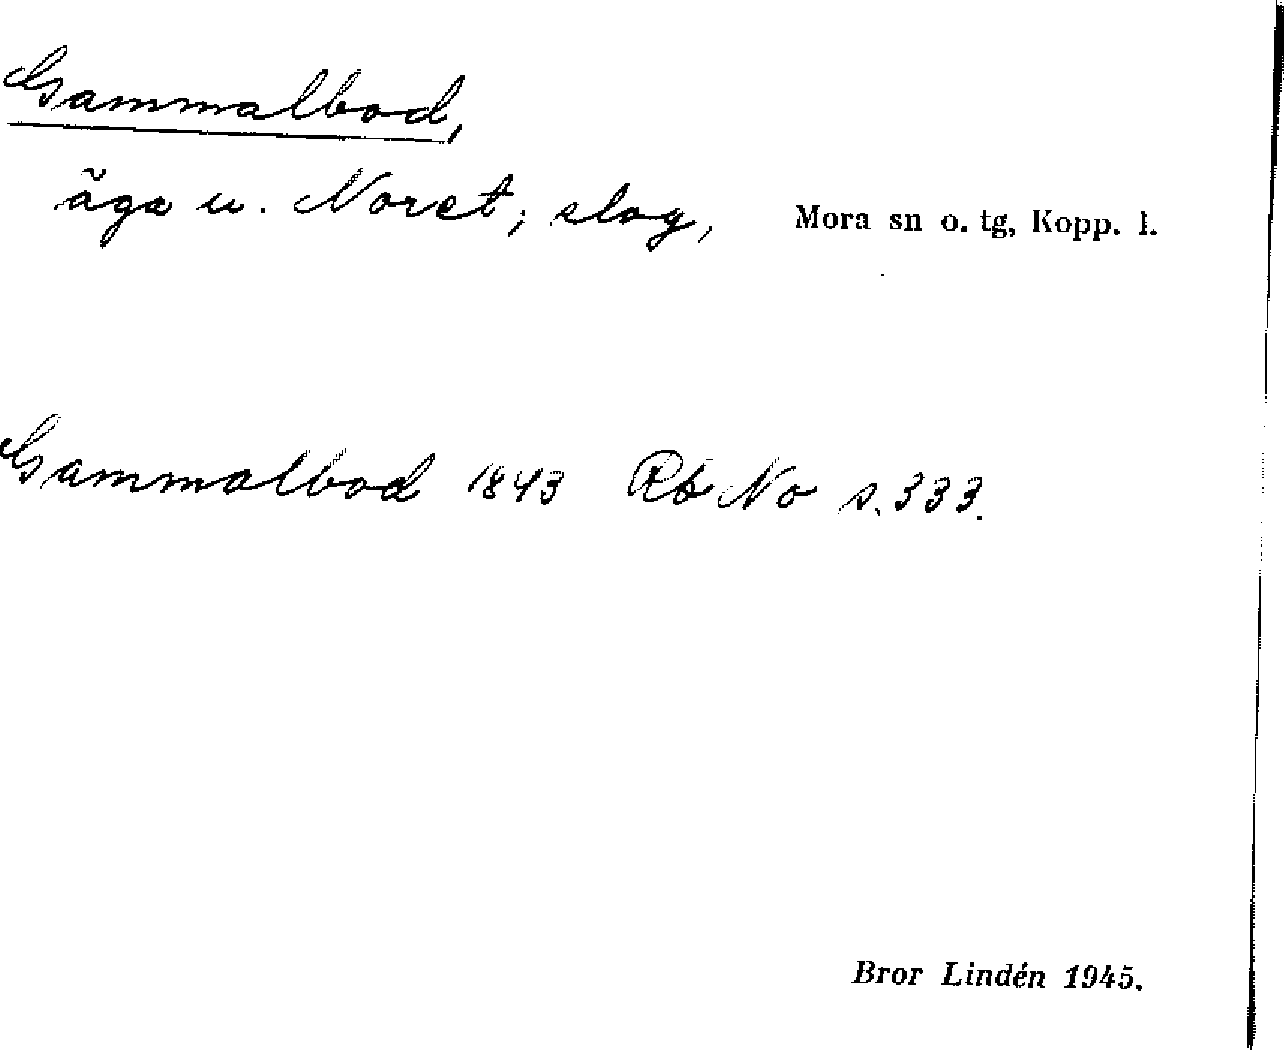 Gammalbod,
äga u. Noret; slog, Mora sn o. tg, Kopp. l.
Gammalbod 1843 Rb No s. 333.
Bror Lindén 1945.